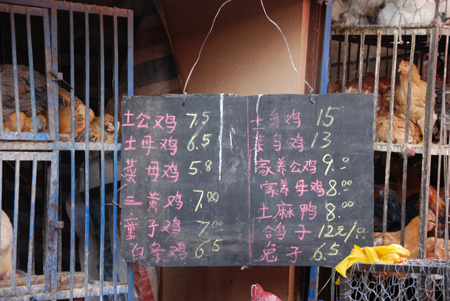 土公鸡 7.5
土母鸡 6.5
菜母鸡 5.8
三黄鸡 7.00
童子鸡 7.00
白条鸡 6.5
土乌鸡 15
菜乌鸡 13
家养公鸡 9.00
家养母鸡 8.00
土麻鸭 8.00
鸽子 12元/只
兔子 6.5